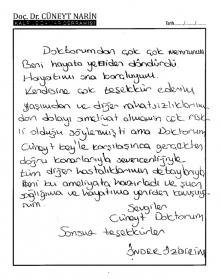 Doç. Dr. CÜNEYT NARİN
KALP DAMAR CERRAHİSİ
Tarih..../..../....
Doktorumdan çok çok memnunum
Beni hayata yeniden döndürdü
Hayatımı ona borçluyum.
Kendisine çok teşekkür ederim
yaşımdan ve diğer rahatsızlıklarım
dan dolayı ameliyat olmamın çok risk
li olduğu söylenmişti ama Doktorum
Cüneyt bey'le karşılaşınca gerçekten
doğru kararlarıyla
tüm diğer hastalıklarımın detaylarıyla
Beni bu ameliyata hazırladı ve şuan
sağlığıma ve hayatıma yeniden kavuştu
rum.
Sevgiler
Cüneyt Doktorum
Sonsuz teşekkürler